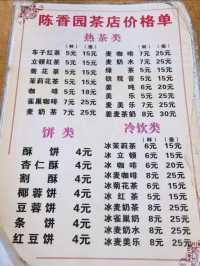 陈香园茶店价格单
热茶类
(杯) (壶) (杯) (壶)
车子红茶 5元 15元 麦咖啡 7元 25元
立顿红茶 5元 15元 麦奶茶 7元 25元
菊花茶 5元 15元 绿茶 5元 15元
茉莉花茶 5元 15元 铁观音 5元 15元
咖啡 5元 18元 美禄 5元 20元
雀巢咖啡 7元 25元 姜茶 5元 20元
麦奶茶 7元 25元 姜麦茶 8元 30元
饼类
酥饼 4元
杏仁酥 4元
割酥 4元
椰蓉饼 4元
豆蓉饼 4元
条饼 4元
红豆饼 4元
冷饮类
冰茉莉茶 6元 15元
冰立顿 6元 15元
冰咖啡 6元 15元
冰菊花茶 6元 15元
冰红茶 6元 15元
冰麦奶茶 8元 25元
冰雀巢奶 8元 25元
冰麦奶水 8元 25元
冰麦美乐 8元 25元